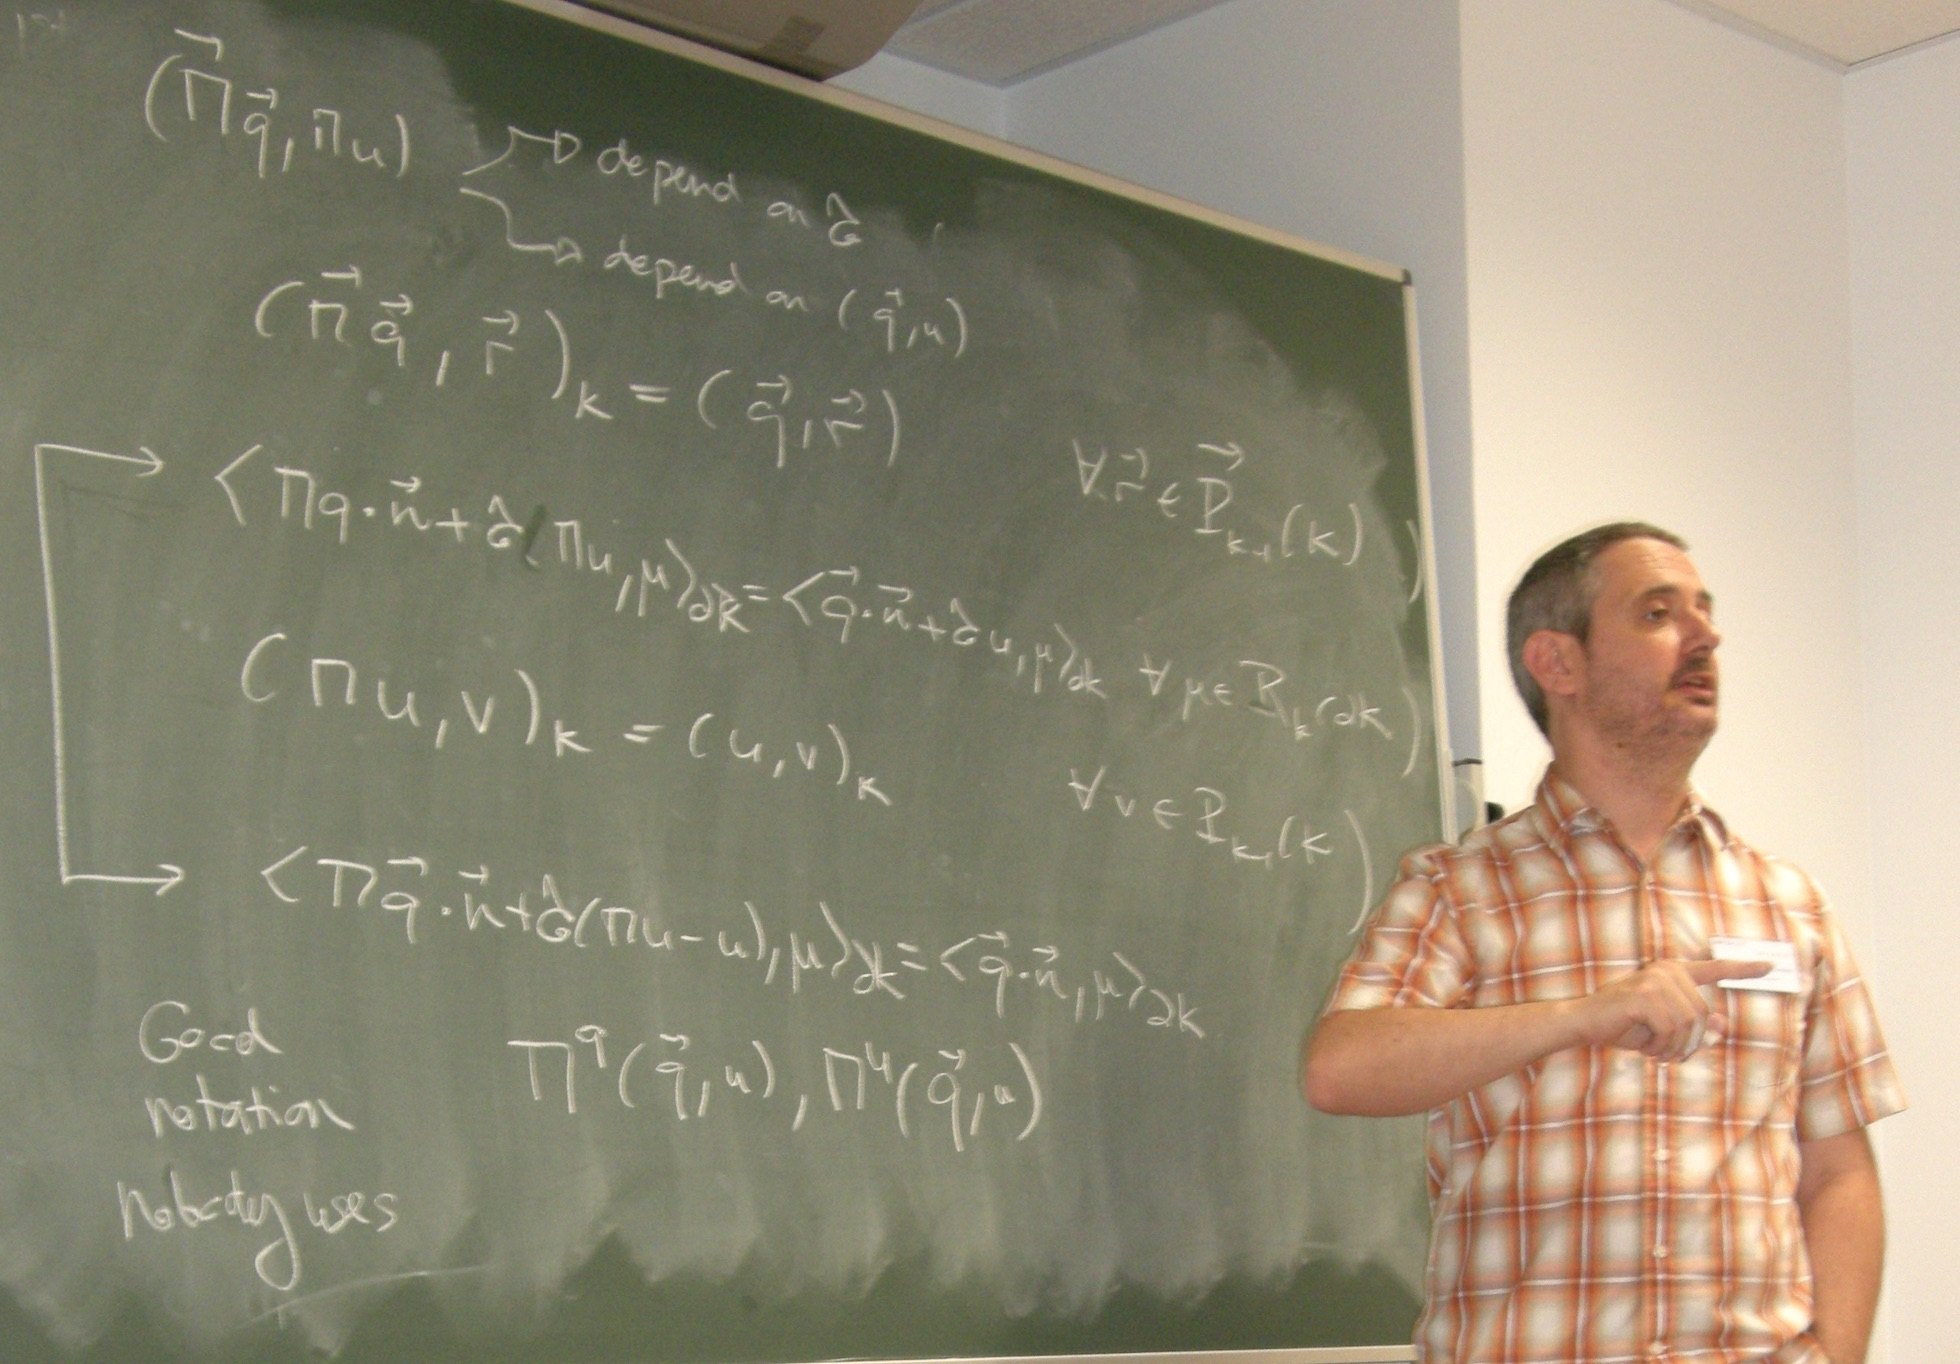 (Π⃗q⃗, Πu) → depend on τ̂
→ depend on (q⃗, u)
(Π⃗q⃗, r⃗)_K = (q⃗, r⃗) ∀ r⃗ ∈ P⃗_{k-1}(K)
→ <Πq·n⃗ + τ̂ Πu, μ>_∂K = <q⃗·n⃗ + τ̂u, μ>_∂K ∀ μ ∈ R_k(∂K)
(Πu, v)_K = (u, v)_K ∀ v ∈ P_{k-1}(K)
→ <Πq⃗·n⃗ + τ̂(Πu - u), μ>_∂K = <q⃗·n⃗, μ>_∂K
Good
notation
nobody uses
Π^q(q⃗, u), Π^u(q⃗, u)